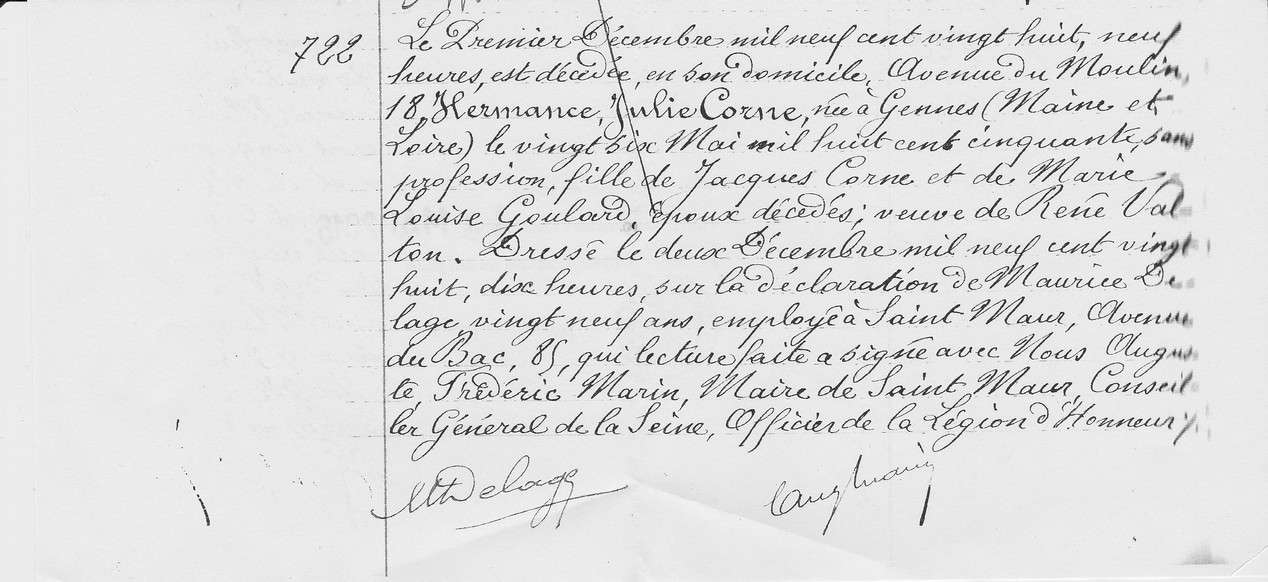 722
Le Premier Décembre mil neuf cent vingt huit, neuf
heures, est décédée, en son domicile, Avenue du Moulin,
18, Hermance, Julie Corne, née à Gennes (Maine et
Loire) le vingt six Mai mil huit cent cinquante, sans
profession, fille de Jacques Corne et de Marie
Louise Goulard, époux décédés; veuve de René Val=
ton. Dressé le deux Décembre mil neuf cent vingt
huit, dix heures, sur la déclaration de Maurice De=
lage, vingt neuf ans, employé à Saint Maur, Avenue
du Bac, 85, qui lecture faite a signé avec Nous Augus=
te, Frédéric Marin, Maire de Saint Maur, Conseil
ler Général de la Seine, Officier de la Légion d'Honneur
MDelage
Aug Marin